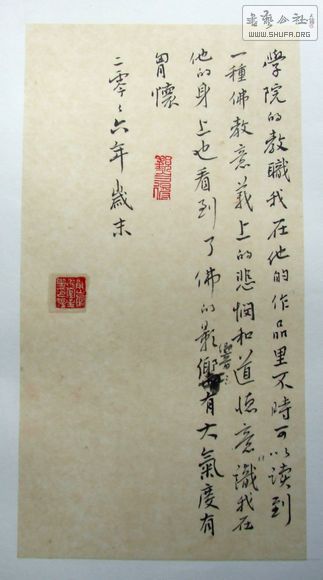 書藝公社
WWW.SHUFA.ORG
學院的教職我在他的作品里不時可以读到
一種佛教意義上的悲悯和道德意識我在
他的身上也看到了佛的影響有大氣度有
胃懷
二零零六年歲末